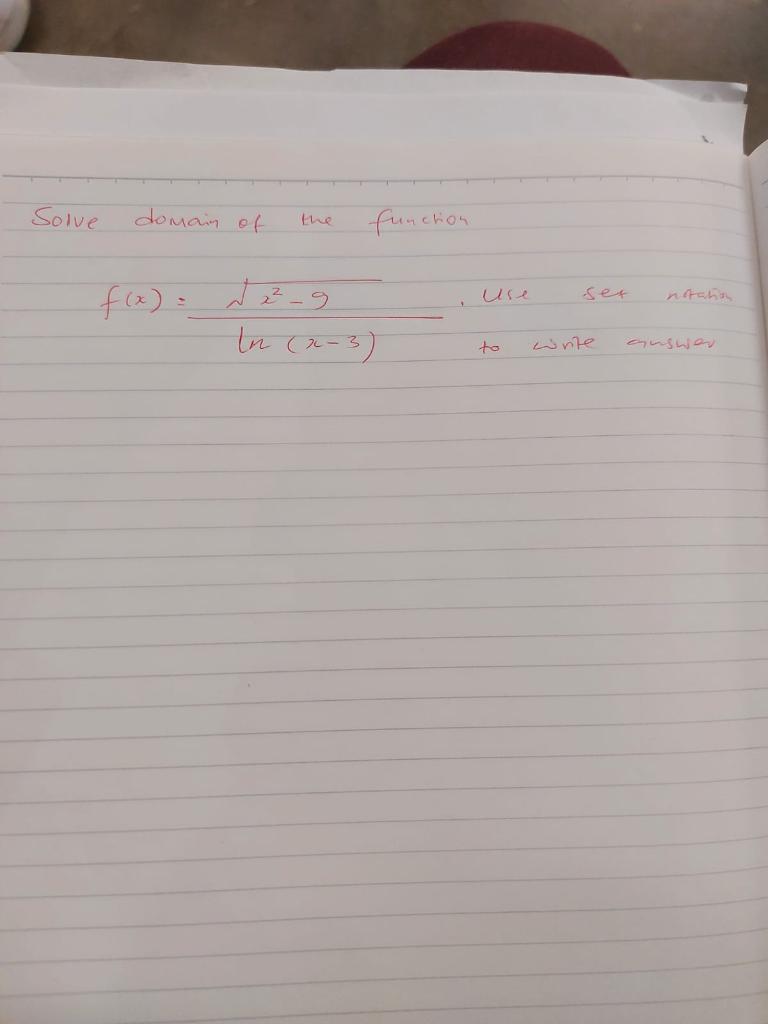 Solve domain of the function
f(x) = √x² - 9 / ln (x-3) . Use set notation
to write answer